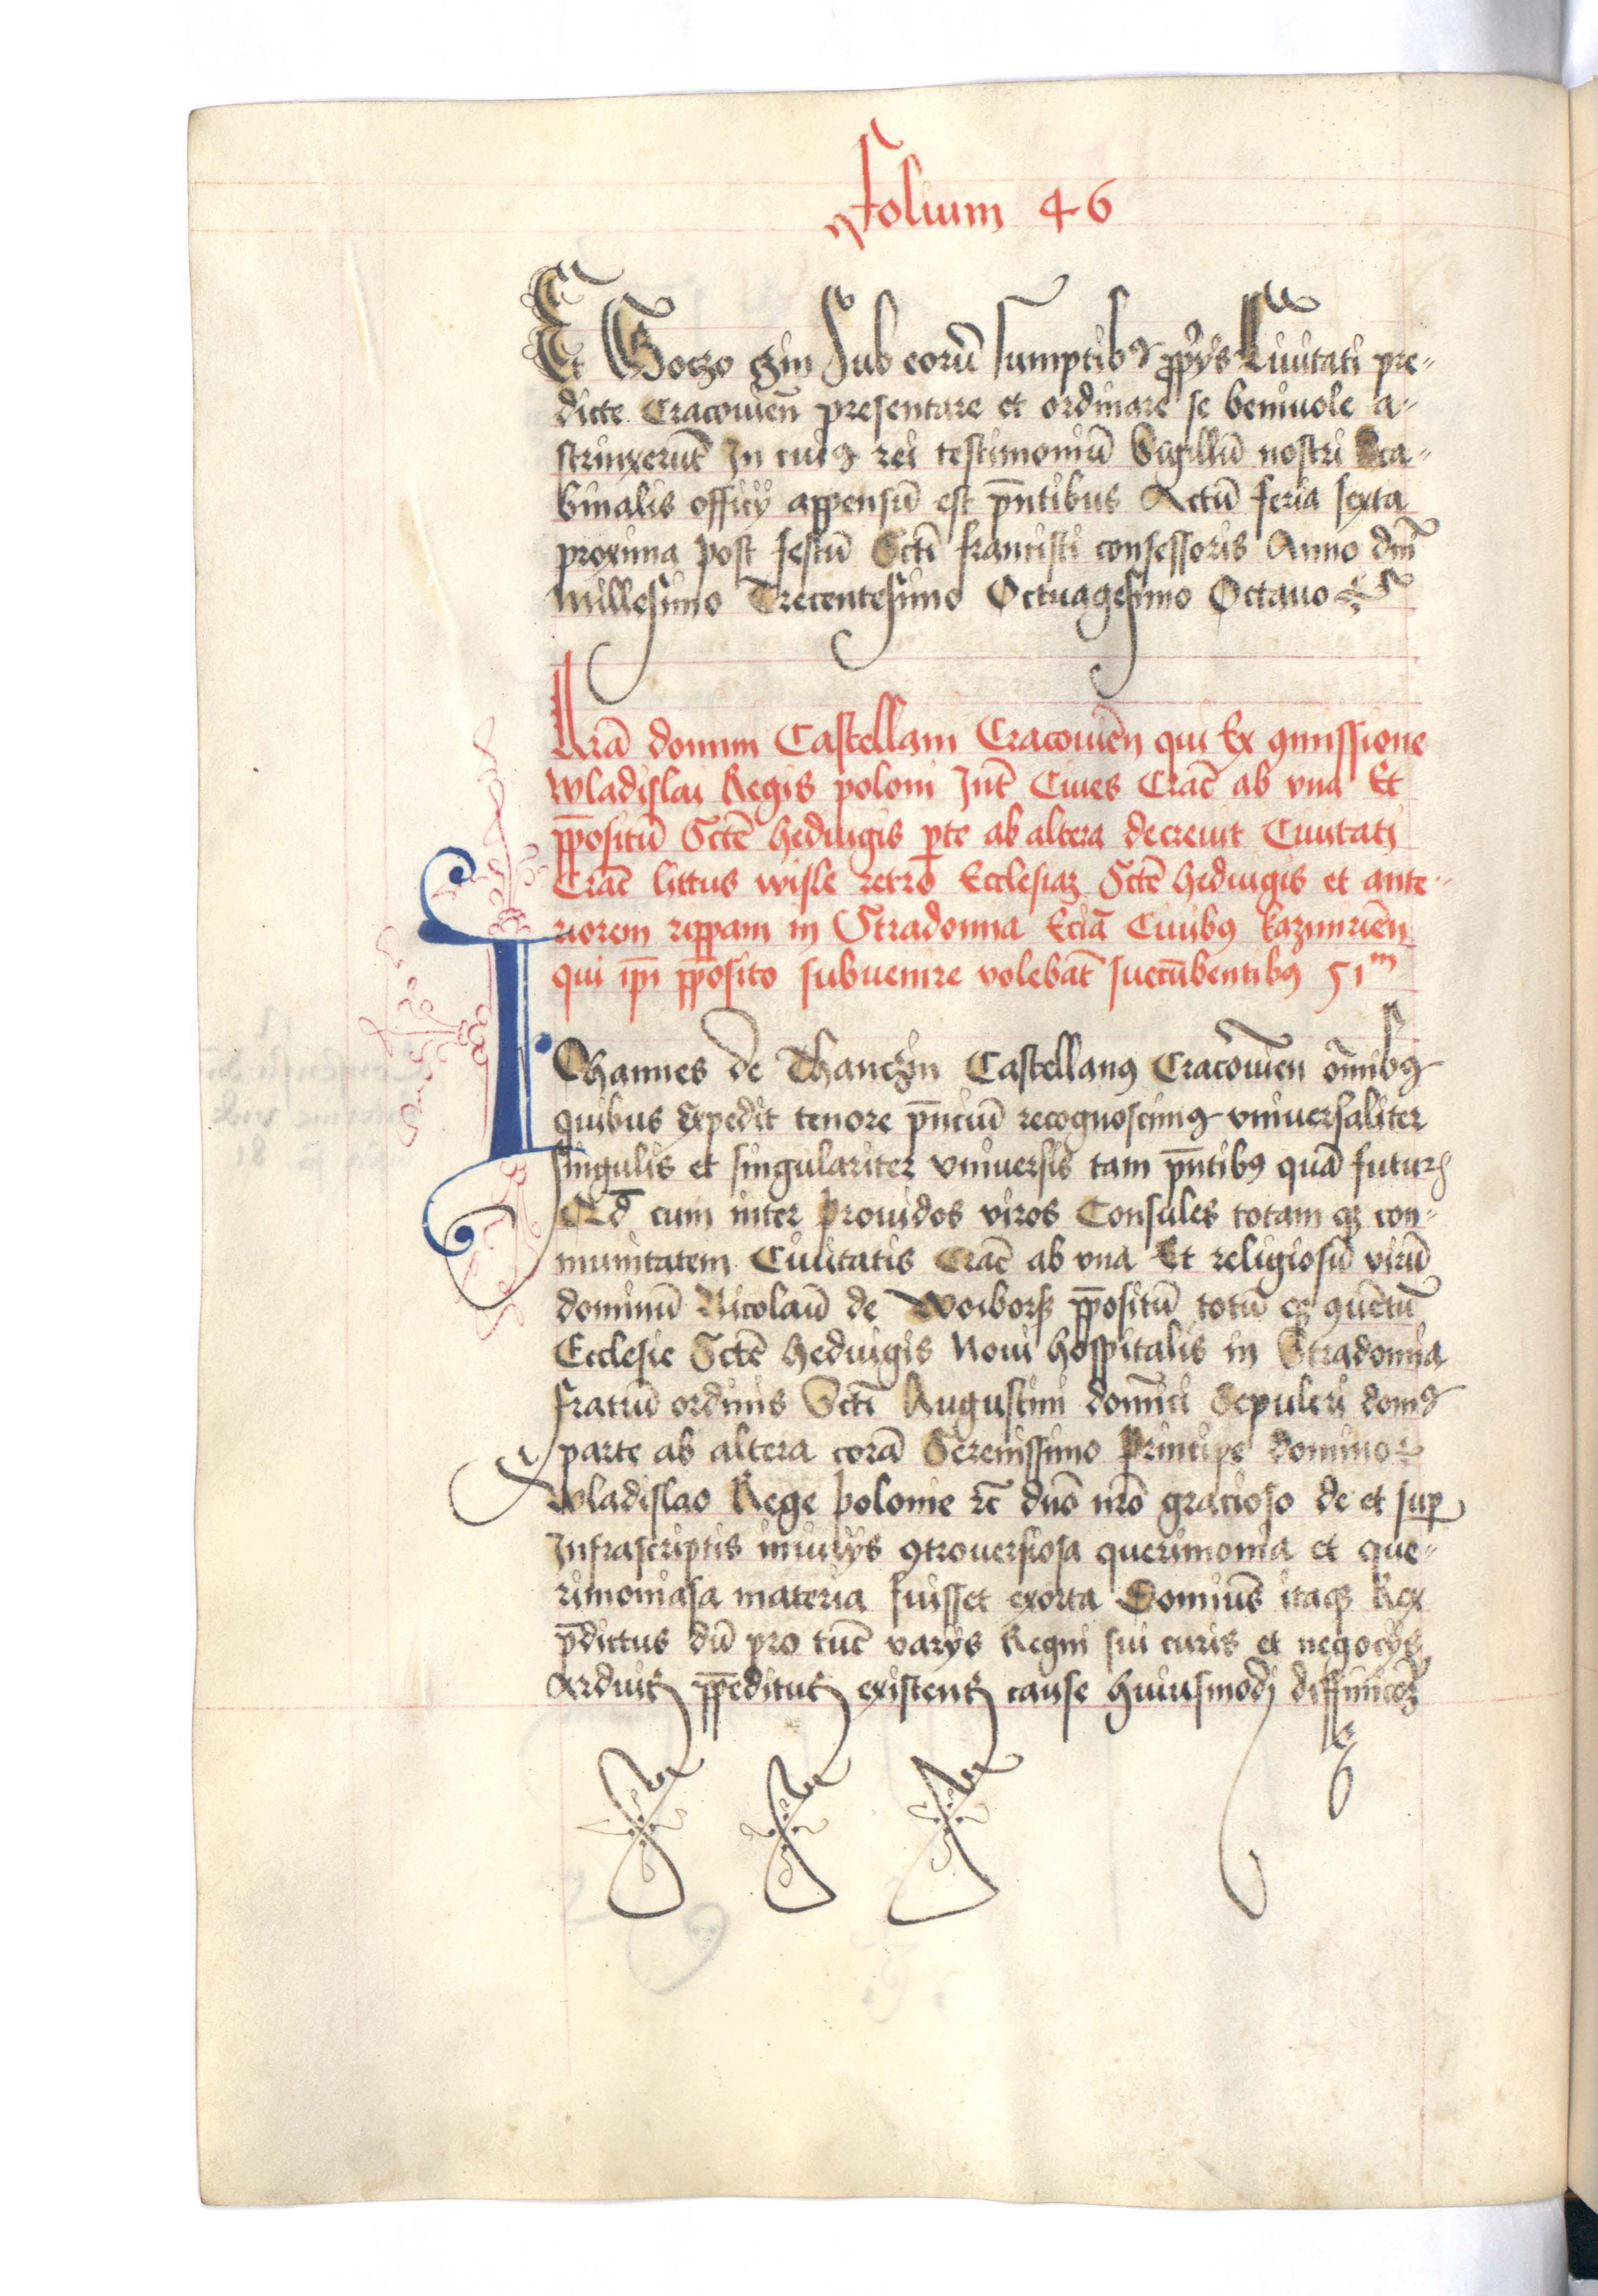 Folium 46
Et Goczo gin Sub eorū sumptibꝫ ꝓpijs Ciuitati pre-
dicte Cracouien̄ presentare et ordinare se beniuole a-
strinxerūt In cuiꝫ rei testimoniū Sigillū nostri Sca-
binalis officij appensū est pn̄tibus Actū feria sexta
proxima post festū Sctī francisci confessoris Anno dn̄i
Millesimo Trecentesimo Octuagesimo Octauo
Lrā domini Castellani Cracouien̄ qui Ex ꝯmissione
wladislai Regis poloni Int̄ Ciues Crac̄ ab vna Et
pp̄ositū Sctē hedwigis pte ab altera decreuit Ciuitati
Crac̄ littus wisle retro Ecclesiaꝫ Sctē hedwigis et ante-
riorem rippam in Stradomia Eciā Ciuibꝫ kazimirien̄
qui ip̄i pp̄osito subuenire volebāt succūbentibꝫ 51ᵐ
IOhannes de Thanczin Castellanꝫ Cracouien̄ om̄ibꝫ
quibus expedit tenore pn̄ciū recognoscimꝫ vniuersaliter
singulis et singulariter vniuersis tam pn̄tibꝫ quā futur
Qd̄ cum inter prouidos viros Consules totam qꝫ con-
munitatem Ciuitatis Crac̄ ab vna Et religiosū virū
dominū Nicolaū de Woiborz pp̄ositū totū qꝫ ꝯuentū
Ecclesie Sctē hedwigis Noui hospitalis in Stradomia
fratrū ordinis Sctī Augustini domīci Sepulcri domꝫ
parte ab altera corā Serenissimo Principe domino
wladislao Rege polonie ꝛc̄ dn̄o nr̄o gracioso de et sup
Infrascriptis iniurijs ꝯtrouersiosa querimonia et que-
rimoniosa materia fuisset exorta Dominus itaqꝫ Rex
p̄dictus dū pro tūc varijs Regni sui curis et negocijs
Arduis pp̄editus existens cause huiusmodi diffinicōꝫ